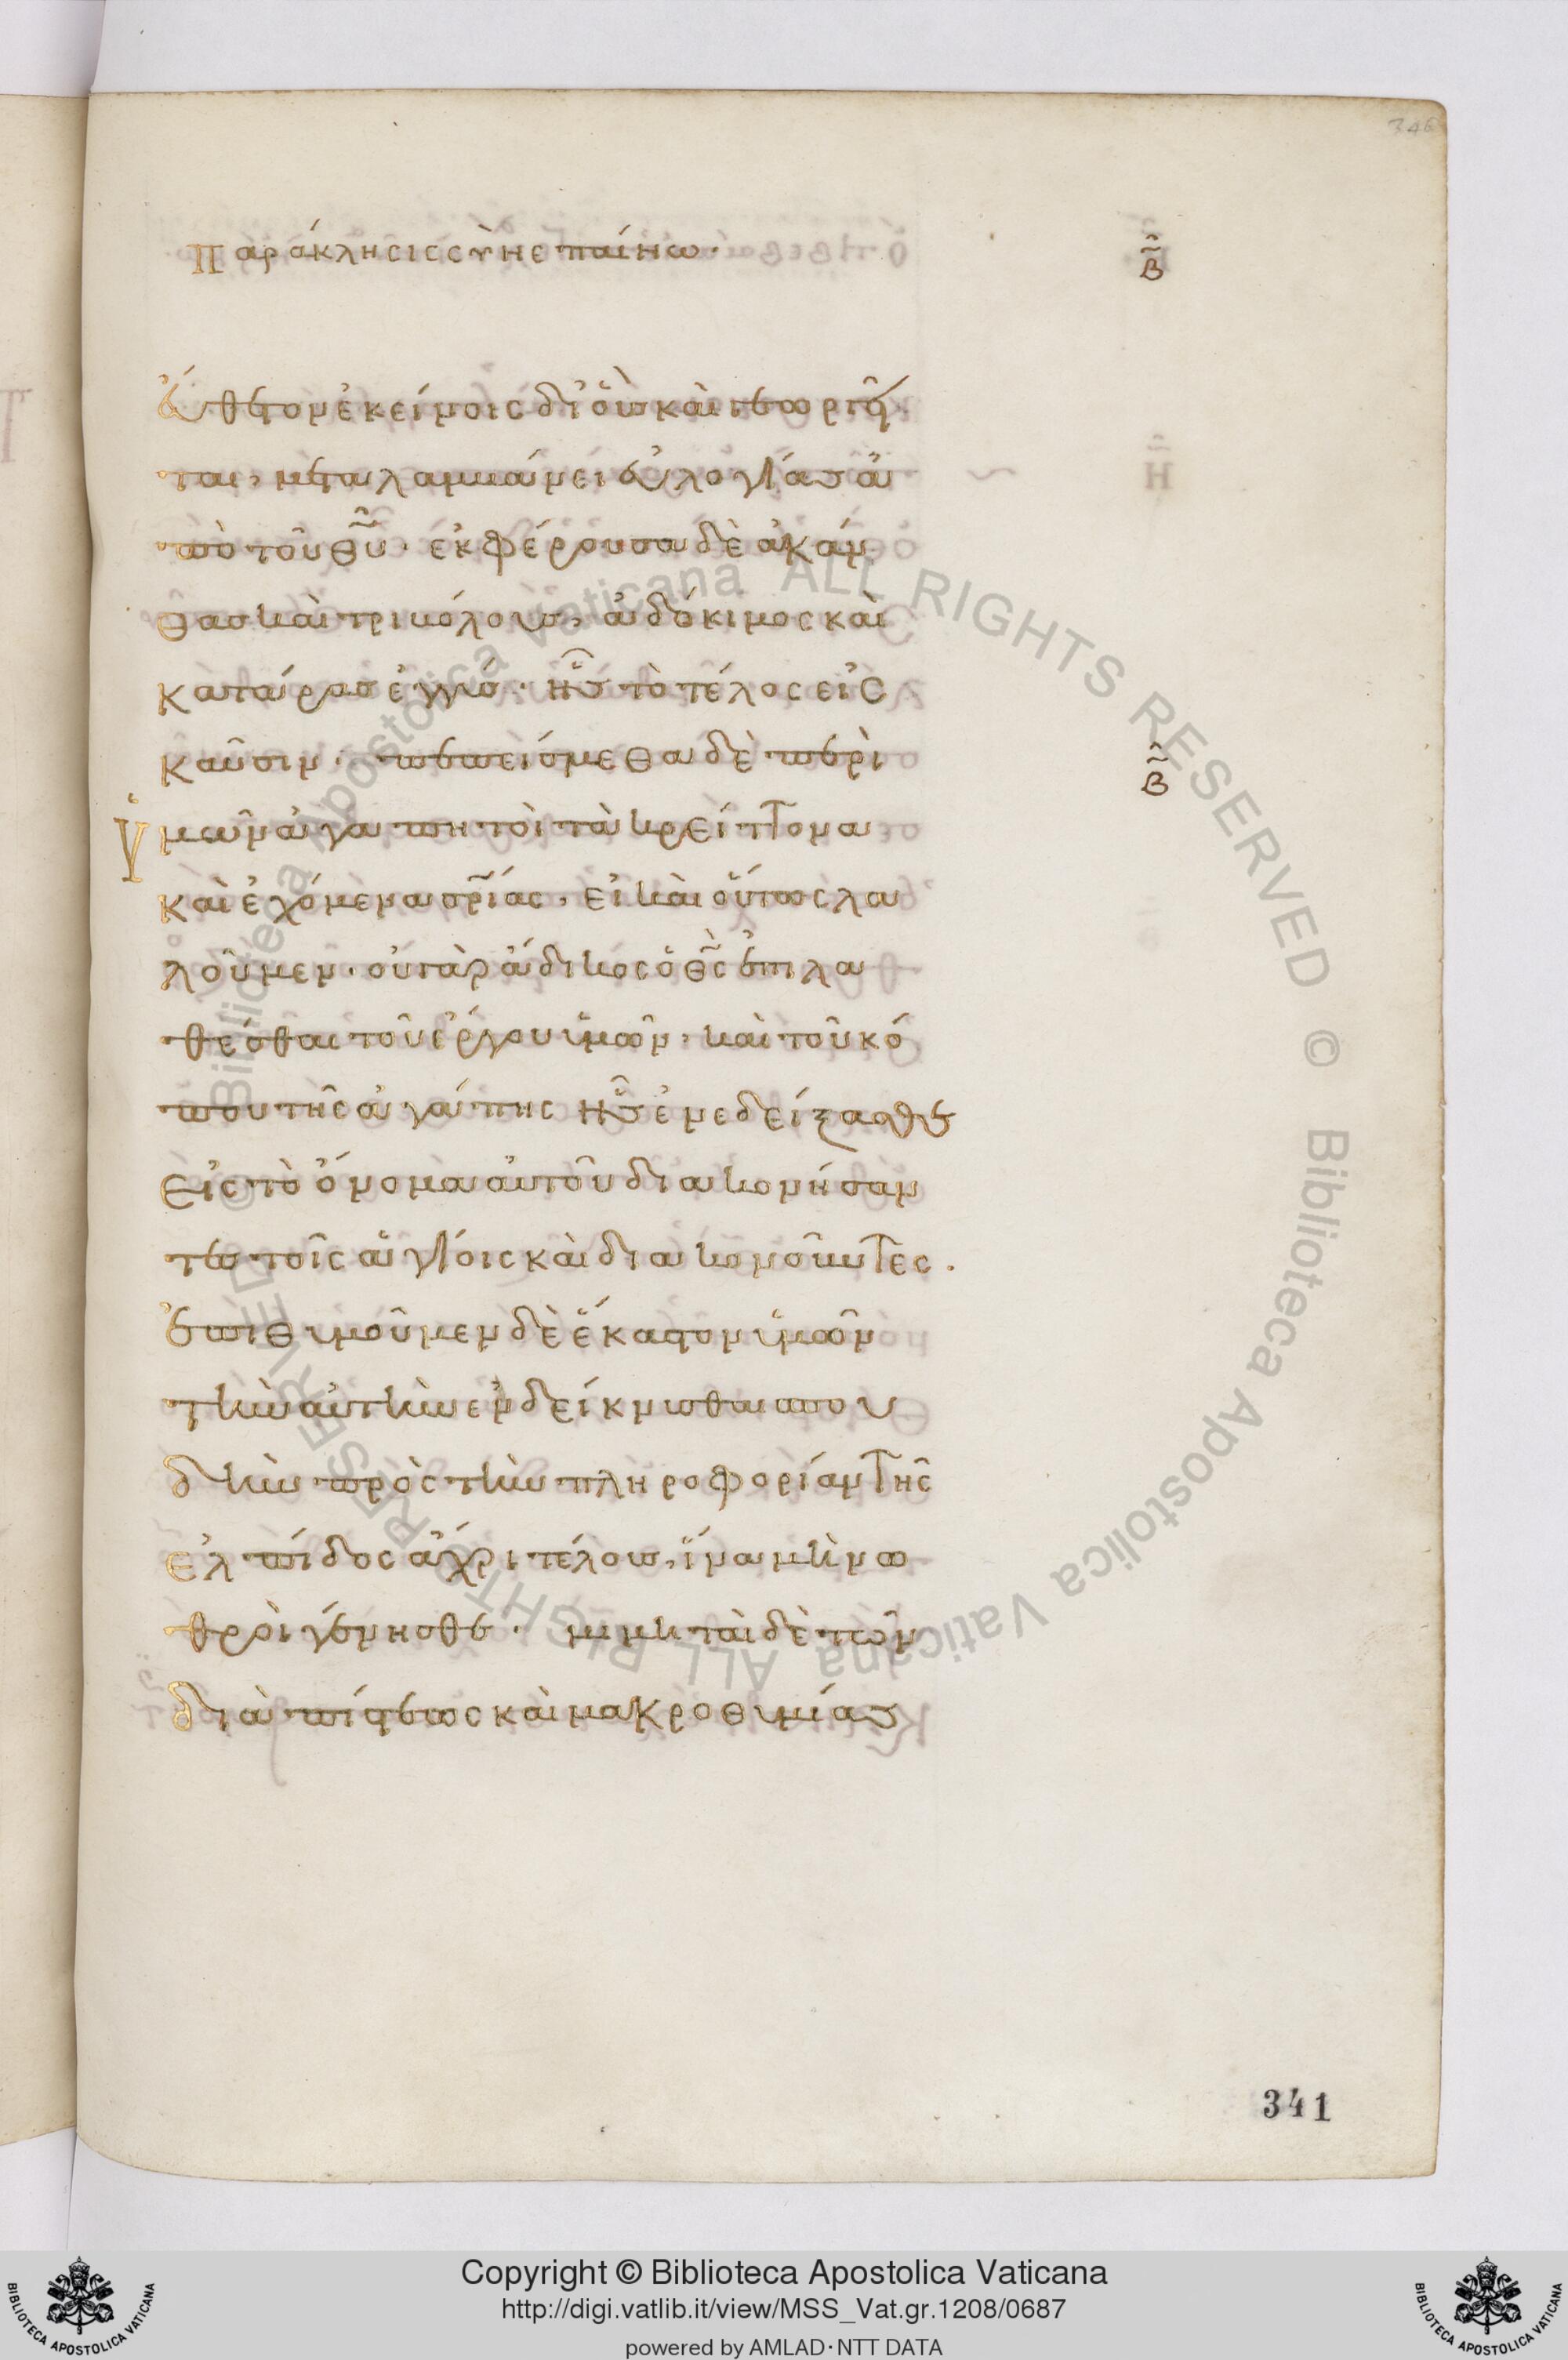 346
Παράκλησις σὺν ἐπαίνω·
β̃
εὔθετον ἐκείνοις δι' οὓς καὶ γεωργῆ
ται, μεταλαμβάνει εὐλογίας ἀ
πὸ τοῦ θ̅υ̅· ἐκφέρουσα δὲ ἀκάν
θας καὶ τριβόλους, ἀδόκιμος καὶ
κατάρας ἐγγύς· ἧς τὸ τέλος εἰς
καῦσιν· πεπείσμεθα δὲ περὶ
β̃
ὑμῶν ἀγαπητοὶ τὰ κρείττονα
καὶ ἐχόμενα σ̅ρ̅ίας, εἰ καὶ οὕτως λα
λοῦμεν· οὐ γὰρ ἄδικος ὁ θ̅ς̅ ἐπιλα
θέσθαι τοῦ ἔργου ὑμῶν, καὶ τοῦ κό
που τῆς ἀγάπης ἧς ἐνεδείξασθε
εἰς τὸ ὄνομα αὐτοῦ διακονήσαν
τες τοῖς ἁγίοις καὶ διακονοῦντες.
ἐπιθυμοῦμεν δὲ ἕκαστον ὑμῶν
τὴν αὐτὴν ἐνδείκνυσθαι σπου
δὴν πρὸς τὴν πληροφορίαν τῆς
ἐλπίδος ἄχρι τέλους, ἵνα μὴ νω
θροὶ γένησθε· μιμηταὶ δὲ τῶν
διὰ πίστεως καὶ μακροθυμίας
341
© Biblioteca Apostolica Vaticana ALL RIGHTS RESERVED © Biblioteca Apostolica Vaticana ALL RIGHTS RESERVED
Copyright © Biblioteca Apostolica Vaticana
http://digi.vatlib.it/view/MSS_Vat.gr.1208/0687
powered by AMLAD·NTT DATA
BIBLIOTECA APOSTOLICA VATICANA
BIBLIOTECA APOSTOLICA VATICANA